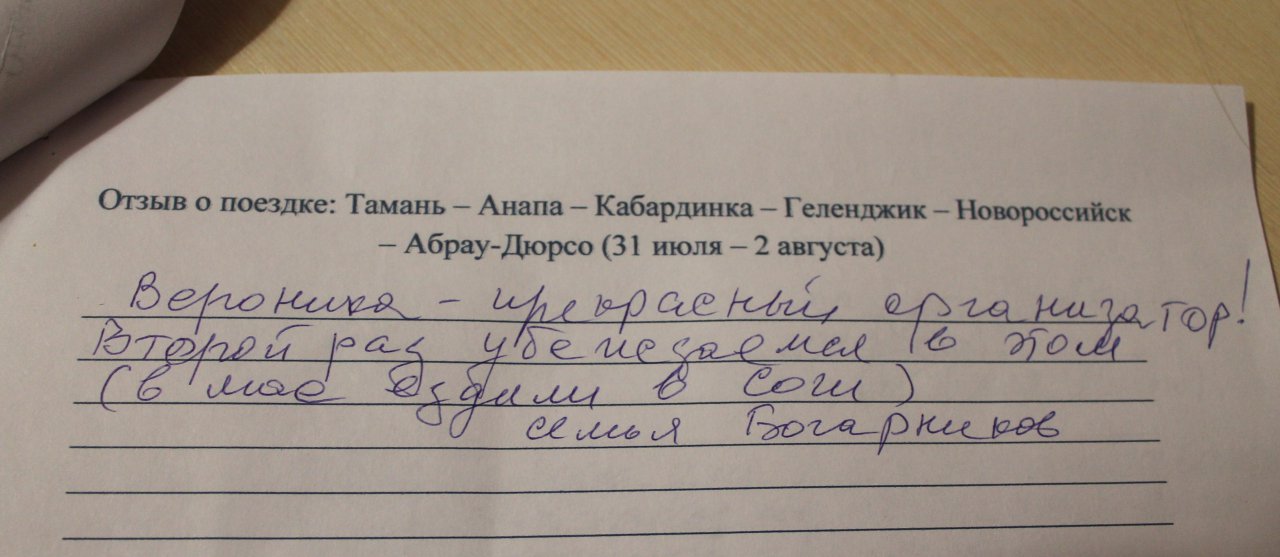 Отзыв о поездке: Тамань – Анапа – Кабардинка – Геленджик – Новороссийск
– Абрау-Дюрсо (31 июля – 2 августа)
Вероника - прекрасный организатор!
Второй раз убеждаемся в этом
(в мае ездили в Сочи)
семья Богарников